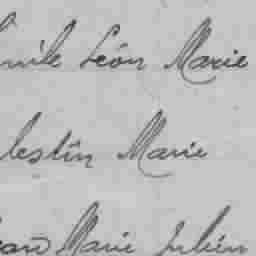 mile Léon Marie
lestin Marie
ean Marie Julien